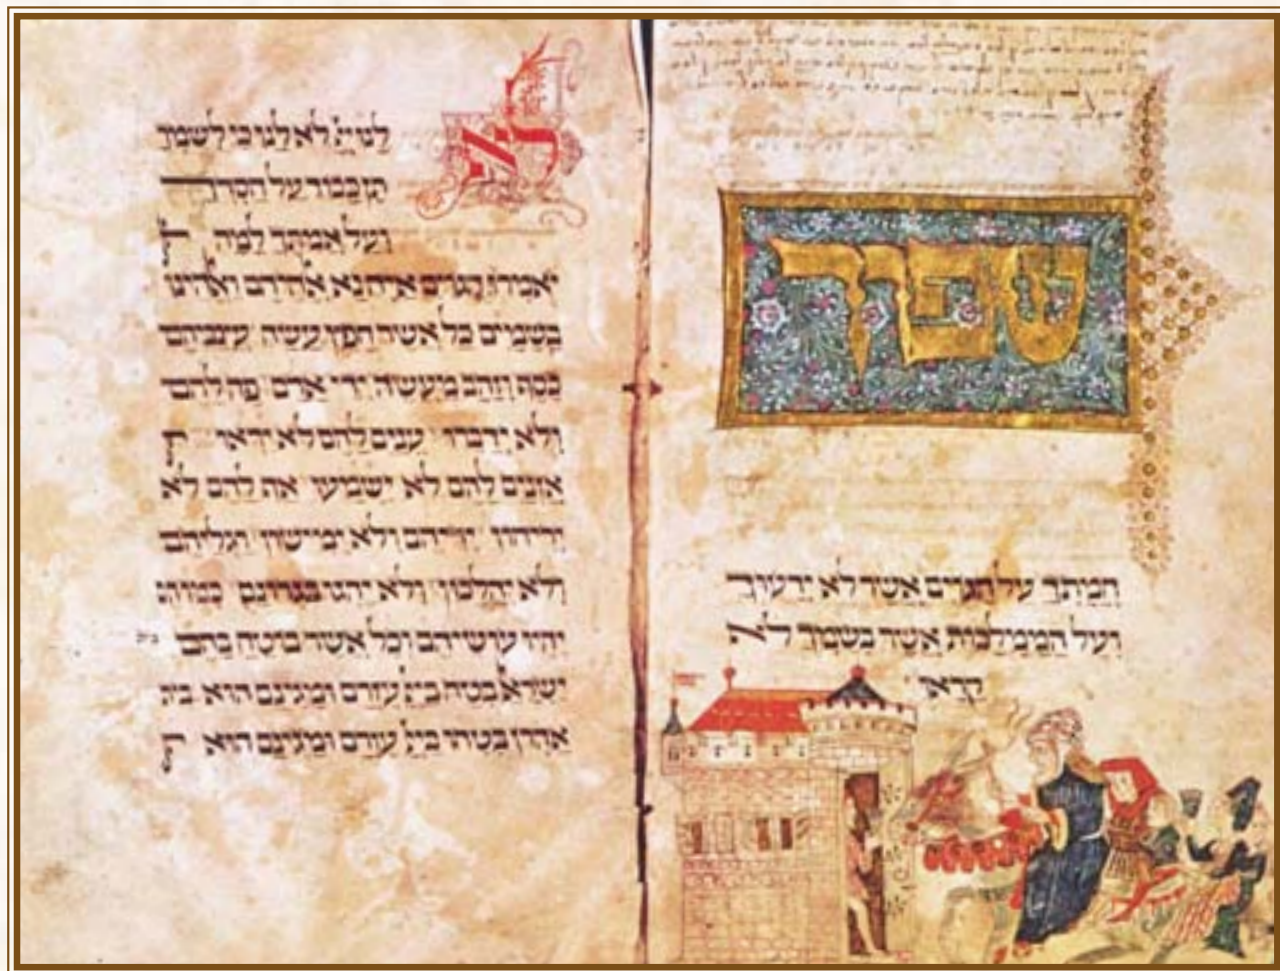 שפוך
חמתך על הגוים אשר לא ידעוך
ועל הממלכות אשר בשמך לא
קראו
לא
לנו יי לא לנו כי לשמך
תן כבוד על חסדך
ועל אמתך למה
יאמרו הגוים איה נא אלהיהם ואלהינו
בשמים כל אשר חפץ עשה עצביהם
כסף וזהב מעשה ידי אדם פה להם
ולא ידברו עינים להם לא יראו
אזנים להם לא ישמעו אף להם לא
יריחון ידיהם ולא ימישון רגליהם
ולא יהלכון ולא יהגו בגרונם כמוהם
יהיו עושיהם וכל אשר בוטח בהם
ישראל בטח ביי עזרם ומגינם הוא בית
אהרן בטחו ביי עזרם ומגינם הוא